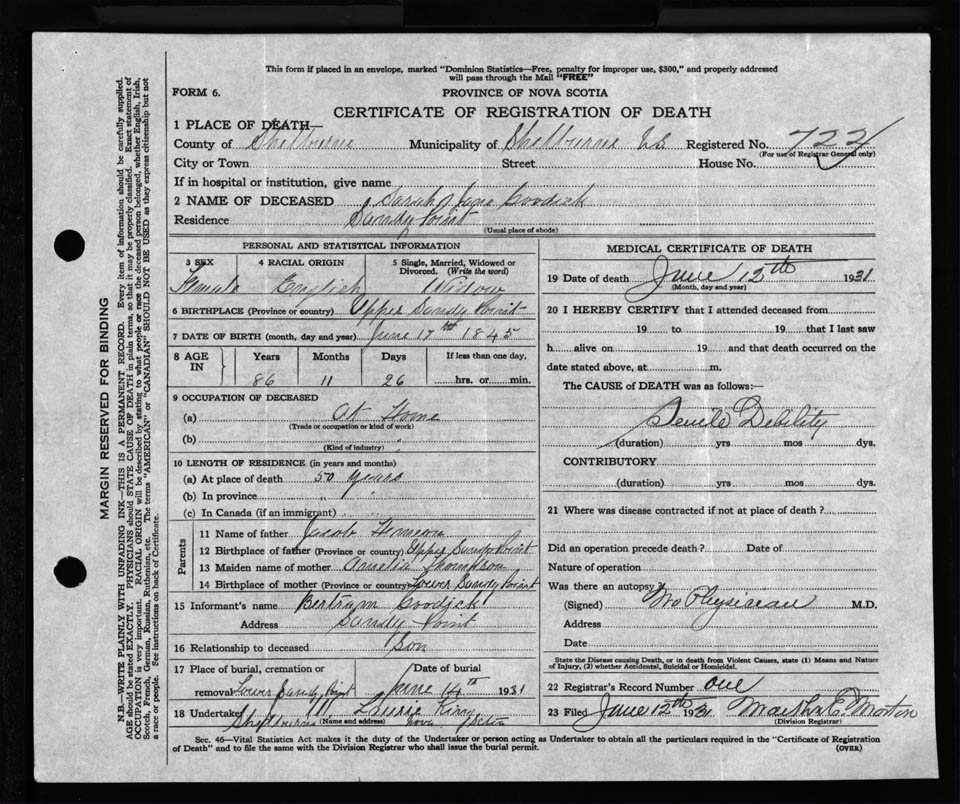 This form if placed in an envelope, marked "Dominion Statistics—Free, penalty for improper use, $300," and properly addressed
will pass through the Mail "FREE"
FORM 6.
PROVINCE OF NOVA SCOTIA
CERTIFICATE OF REGISTRATION OF DEATH
1 PLACE OF DEATH—
County of Shelburne Municipality of Shelburne Registered No. 722
(For use of Registrar General only)
City or Town Street House No.
If in hospital or institution, give name
2 NAME OF DECEASED Sarah Jane Goodick
Residence Sandy Point
(Usual place of abode)
PERSONAL AND STATISTICAL INFORMATION
3 SEX 4 RACIAL ORIGIN 5 Single, Married, Widowed or Divorced. (Write the word)
Female English Widow
6 BIRTHPLACE (Province or country) Upper Sandy Point
7 DATE OF BIRTH (month, day and year) June 17th 1845
8 AGE IN Years Months Days If less than one day,
86 11 26 hrs. or min.
9 OCCUPATION OF DECEASED
(a) At Home
(Trade or occupation or kind of work)
(b) "
(Kind of industry)
10 LENGTH OF RESIDENCE (in years and months)
(a) At place of death 50 years
(b) In province " "
(c) In Canada (if an immigrant) " "
Parents
11 Name of father Jacob
12 Birthplace of father (Province or country) Upper Sandy Point
13 Maiden name of mother Amelia Thompson
14 Birthplace of mother (Province or country) Lower Sandy Point
15 Informant's name Bertram Goodick
Address Sandy Point
16 Relationship to deceased Son
17 Place of burial, cremation or Date of burial
removal Lower Sandy Point June 14th 1931
18 Undertaker Laurie King
(Name and address)
Shelburne
MEDICAL CERTIFICATE OF DEATH
19 Date of death June 12th 1931
(Month, day and year)
20 I HEREBY CERTIFY that I attended deceased from
19 to 19 that I last saw
h alive on 19 and that death occurred on the
date stated above, at m.
The CAUSE of DEATH was as follows:—
Senile Debility
(duration) yrs mos dys.
CONTRIBUTORY
(duration) yrs mos dys.
21 Where was disease contracted if not at place of death?
Did an operation precede death? Date of
Nature of operation
Was there an autopsy?
(Signed) No Physician M.D.
Address
Date
State the Disease causing Death, or in death from Violent Causes, state (1) Means and Nature
of Injury, (2) whether Accidental, Suicidal or Homicidal.
22 Registrar's Record Number one
23 Filed June 12th 1931 Martha E. Morton
(Division Registrar)
Sec. 46—Vital Statistics Act makes it the duty of the Undertaker or person acting as Undertaker to obtain all the particulars required in the "Certificate of Registration
of Death" and to file the same with the Division Registrar who shall issue the burial permit.
(OVER)
MARGIN RESERVED FOR BINDING
N.B.—WRITE PLAINLY WITH UNFADING INK—THIS IS A PERMANENT RECORD. Every item of information should be carefully supplied.
AGE should be stated EXACTLY. PHYSICIANS should STATE CAUSE OF DEATH in plain terms, so that it may be properly classified. Exact statement of
OCCUPATION is very important. RACIAL ORIGIN will be described by stating to what people or race the deceased person belonged, whether English, Irish,
Scotch, French, German, Russian, Ruthenian, etc. The terms "AMERICAN" or "CANADIAN" SHOULD NOT BE USED as they express citizenship but not
a race or people. See instructions on back of Certificate.